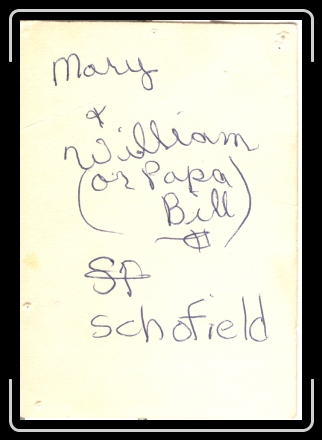 Mary
&
William
(or Papa
Bill)
SP
Schofield